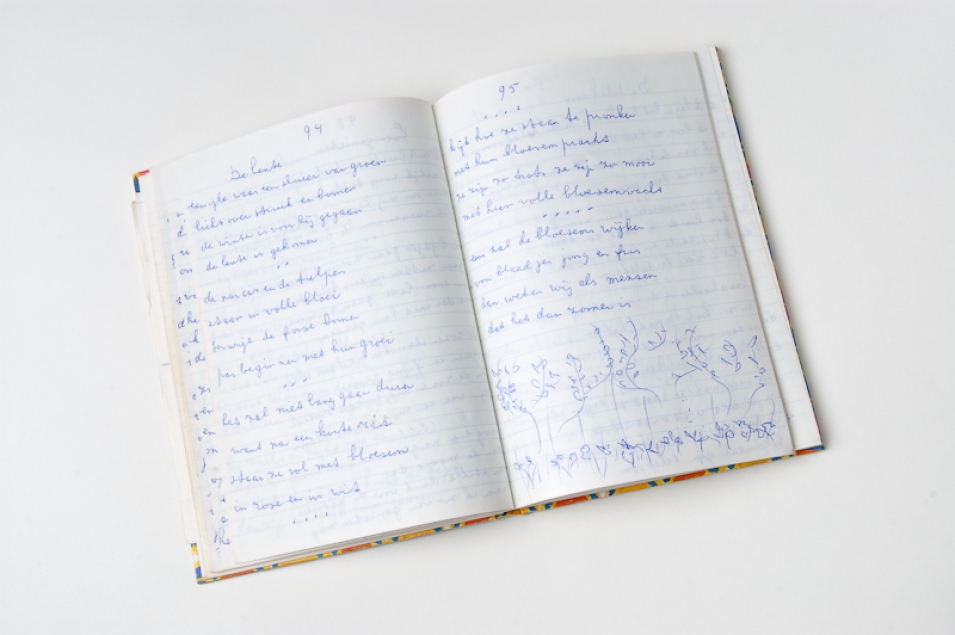 94
De lente
een gloe waas een sluier van groen
licht over struik en bomen
de winter is voorbij gegaan
de lente is gekomen
. .
de narcis en de tulpen
staan in volle bloei
terwijl de forse bomen
pas beginnen met hun groei
. . .
het zal niet lang gaan duren
want na een korte rit
staan ze vol met bloesem
in roze en in wit
. . . .
95
. . . .
kijk hoe ze staan te pronken
met hun bloesempracht
ze zijn zo trots ze zijn zo mooi
met hun volle bloesemvacht
. . . . .
en zal de bloesem wijken
voor blaadjes jong en fris
dan weten wij als mensen
dat het dan zomer is